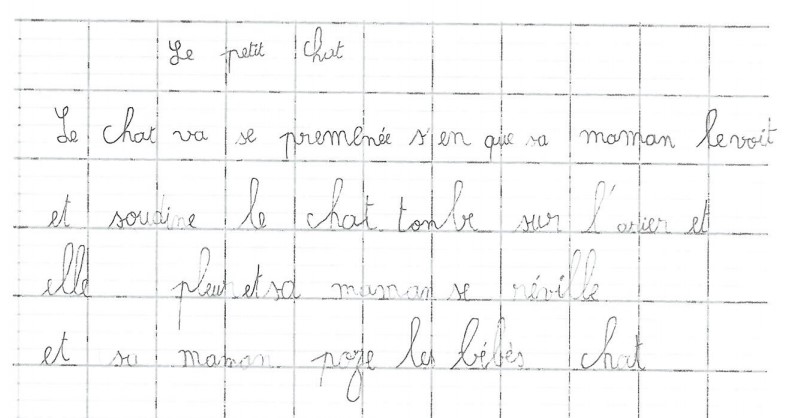 Le petit chat
Le chat va se premenée s'en que sa maman le voit
et soudine le chat tonbe sur l'osier et
elle pleur et sa maman se réville
et sa maman poze les bébès chat